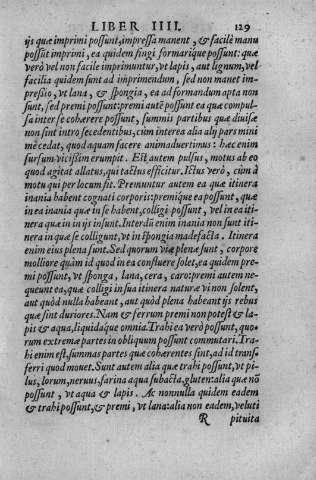 LIBER IIII. 129
ijs quæ imprimi possunt, impressa manent, & facilè manu
possũt imprimi, ea quidem fingi formarique possunt: quæ
verò vel non facile imprimuntur, vt lapis, aut lignum, vel
facilia quidem sunt ad imprimendum, sed non manet im-
pressio, vt lana, & spongia, ea ad formandum apta non
sunt, sed premi possunt: premi autẽ possunt ea quæ compul-
sa inter se cohærere possunt, summis partibus quæ diuisæ
non sunt intro secedentibus, cùm interea alia alij pars mini
mè cedat, quod aquam facere animaduertimus: hæc enim
sursum vicißim erumpit. Est autem pulsus, motus ab eo
quod agitat allatus, qui tactus efficitur. Ictus verò, cùm à
motu qui per locum fit. Premuntur autem ea quæ itinera
inania habent cognati corporis: premique ea possunt, quæ
in ea inania quæ in se habent, colligi possunt, vel in ea iti
nera quæ in in ijs insunt. Interdũ enim inania non sunt iti
nera in quæ se colligunt, vt in spongia madefacta. Itinera
enim eius plena sunt. Sed quorum viæ plenæ sunt, corpore
molliore quàm id quod in ea confluere solet, ea quidem pre
mi possunt, vt spõga, lana, cera, caro: premi autem ne-
queunt ea, quæ colligi in sua itinera naturæ vi non solent,
aut quòd nulla habeant, aut quòd plena habeant ijs rebus
quæ sint duriores. Nam & ferrum premi non potest & la-
pis & aqua, liquidaque omnia. Trahi ea verò possunt, quo-
rum extremæ partes in obliquum possunt commutari. Tra-
hi enim est, summas partes quæ cohærentes sint, ad id trans-
ferri quod mouet. Sunt autem alia quæ trahi possunt, vt pi-
lus, lorum, neruus, farina aqua subacta, gluten: alia quæ nõ
possunt, vt aqua & lapis. Ac nonnulla quidem eadem
& trahi possunt, & premi, vt lana: alia non eadem, veluti
R pituita